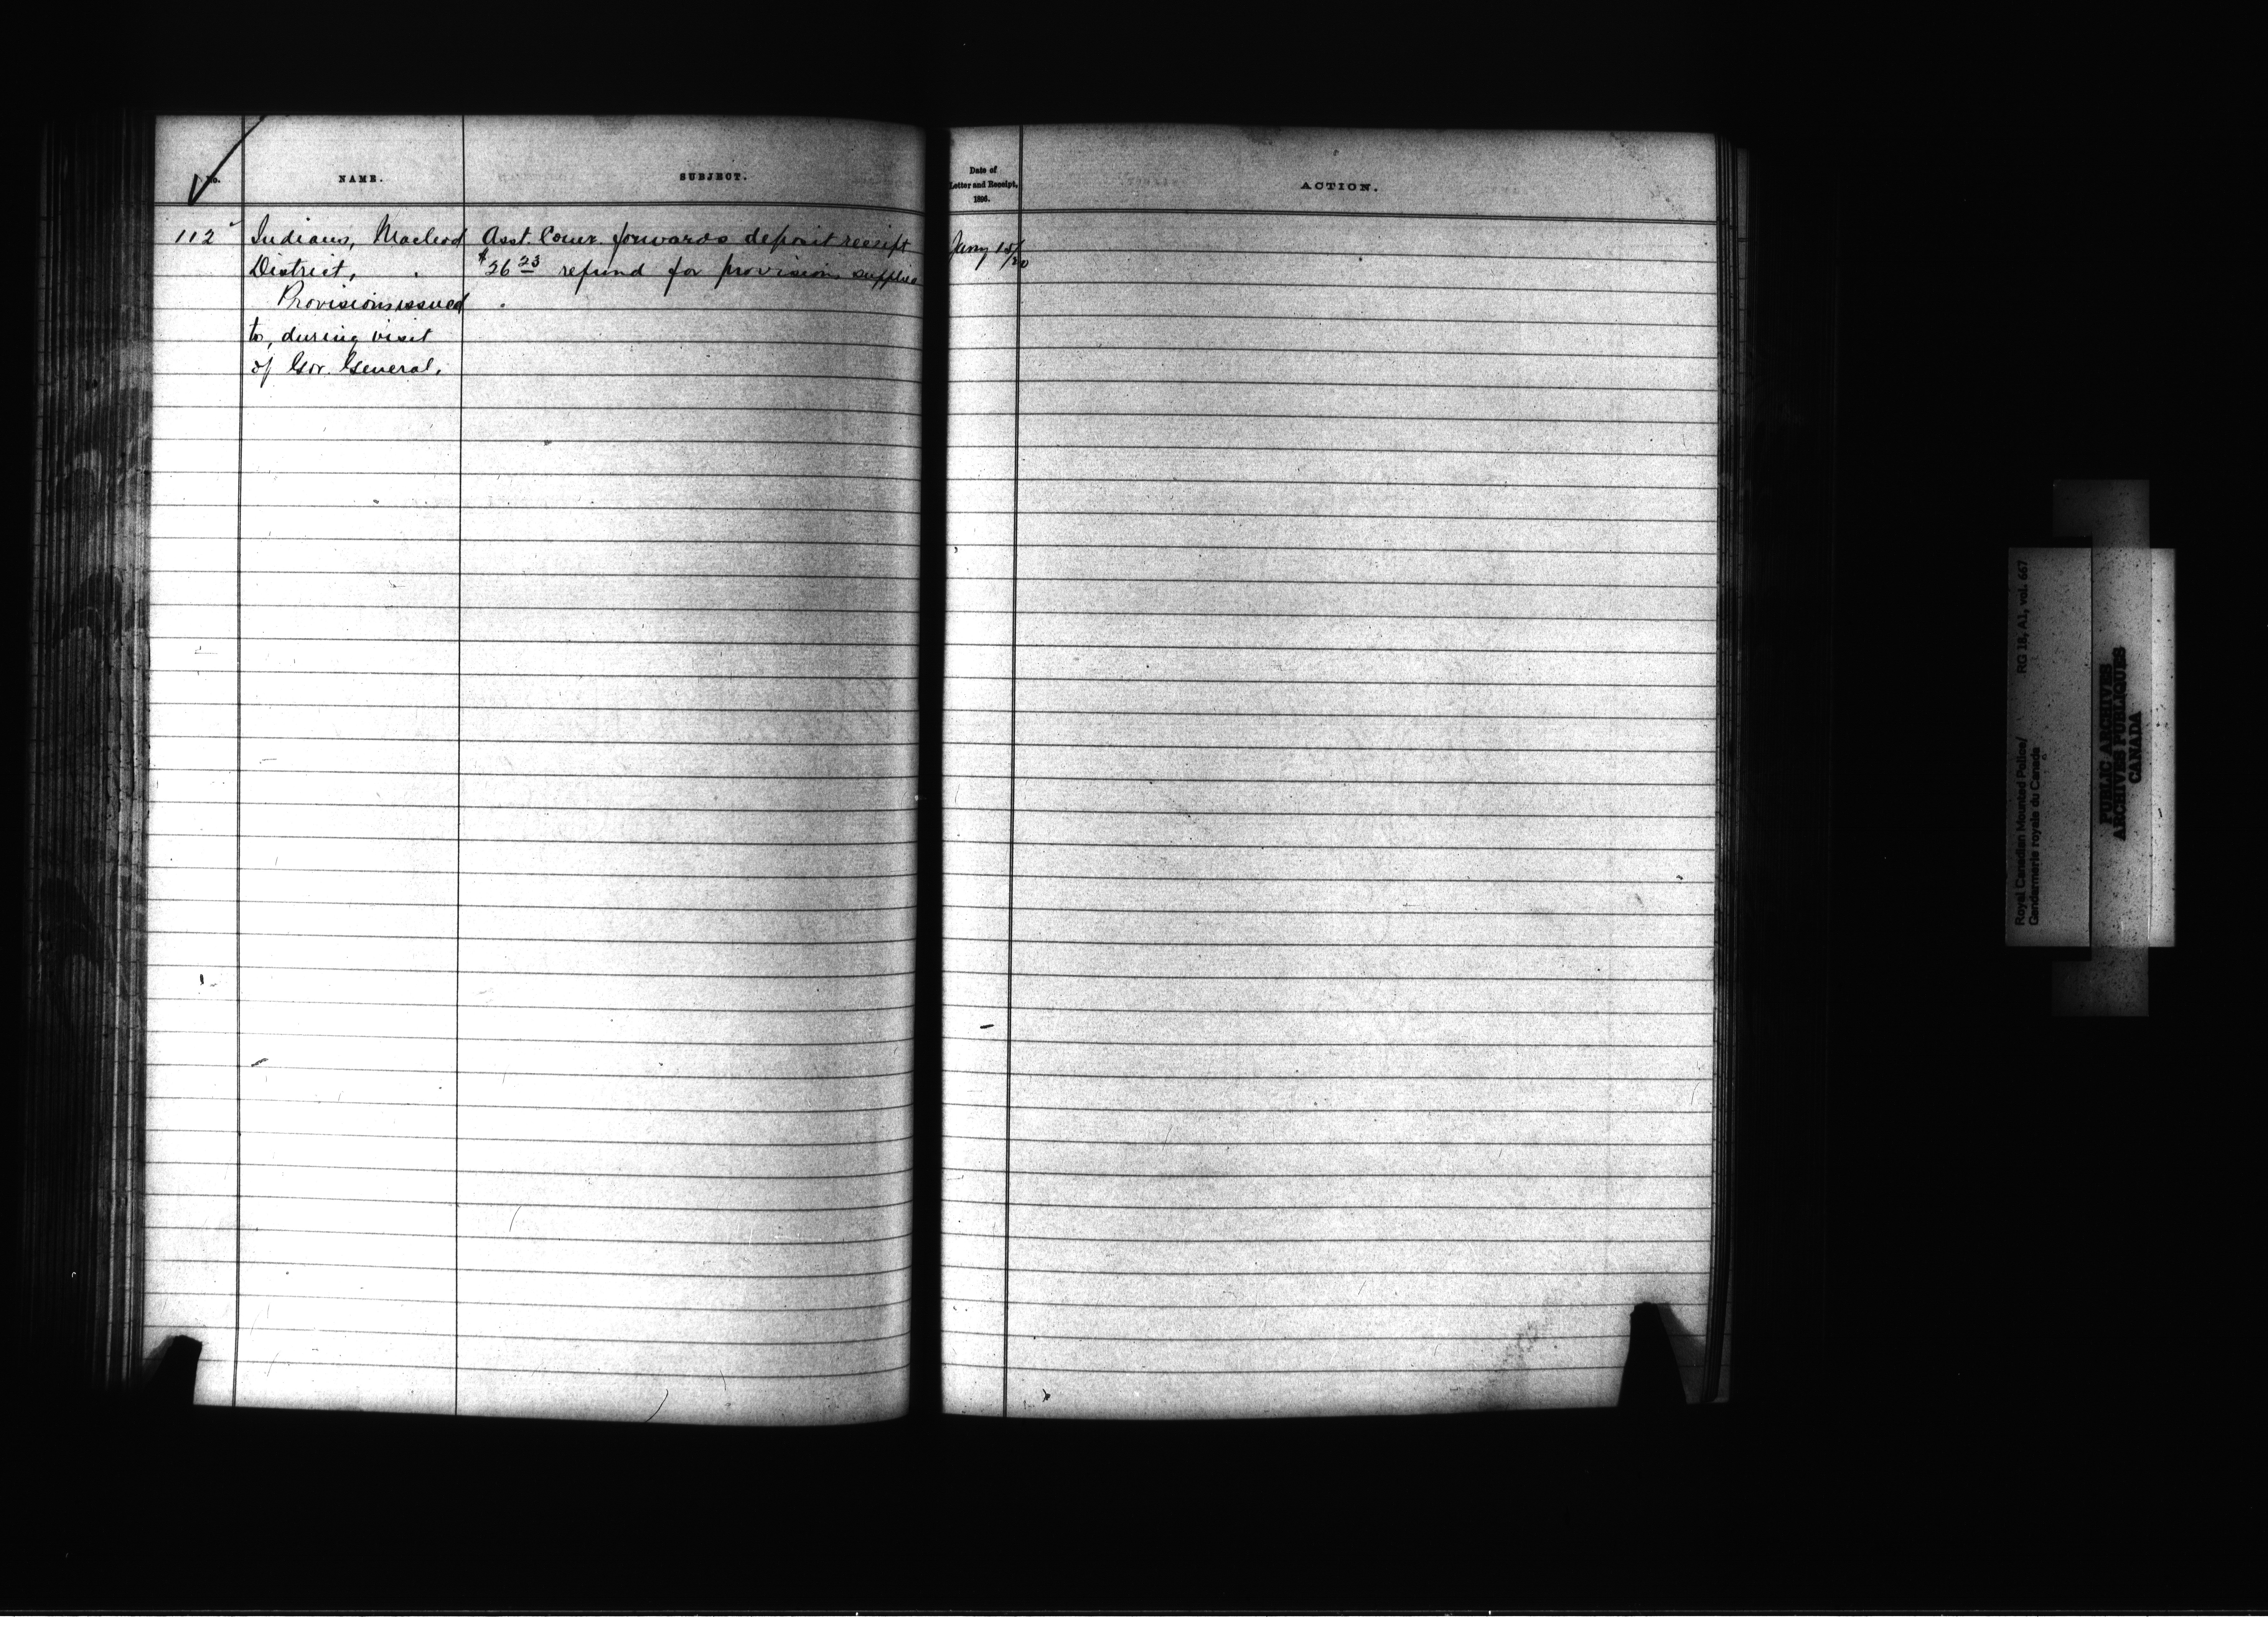 No.
NAME.
SUBJECT.
Date of
Letter and Receipt,
1896.
ACTION.
112
Indians, Macleod
District,
Provisions issued
to, during visit
of Gov. General.
Asst. Comr. forwards deposit receipt
$26 23 refund for provisions supplied
Jany
Royal Canadian Mounted Police/
Gendarmerie royale du Canada
RG 18, A1, vol. 667
PUBLIC ARCHIVES
ARCHIVES PUBLIQUES
CANADA